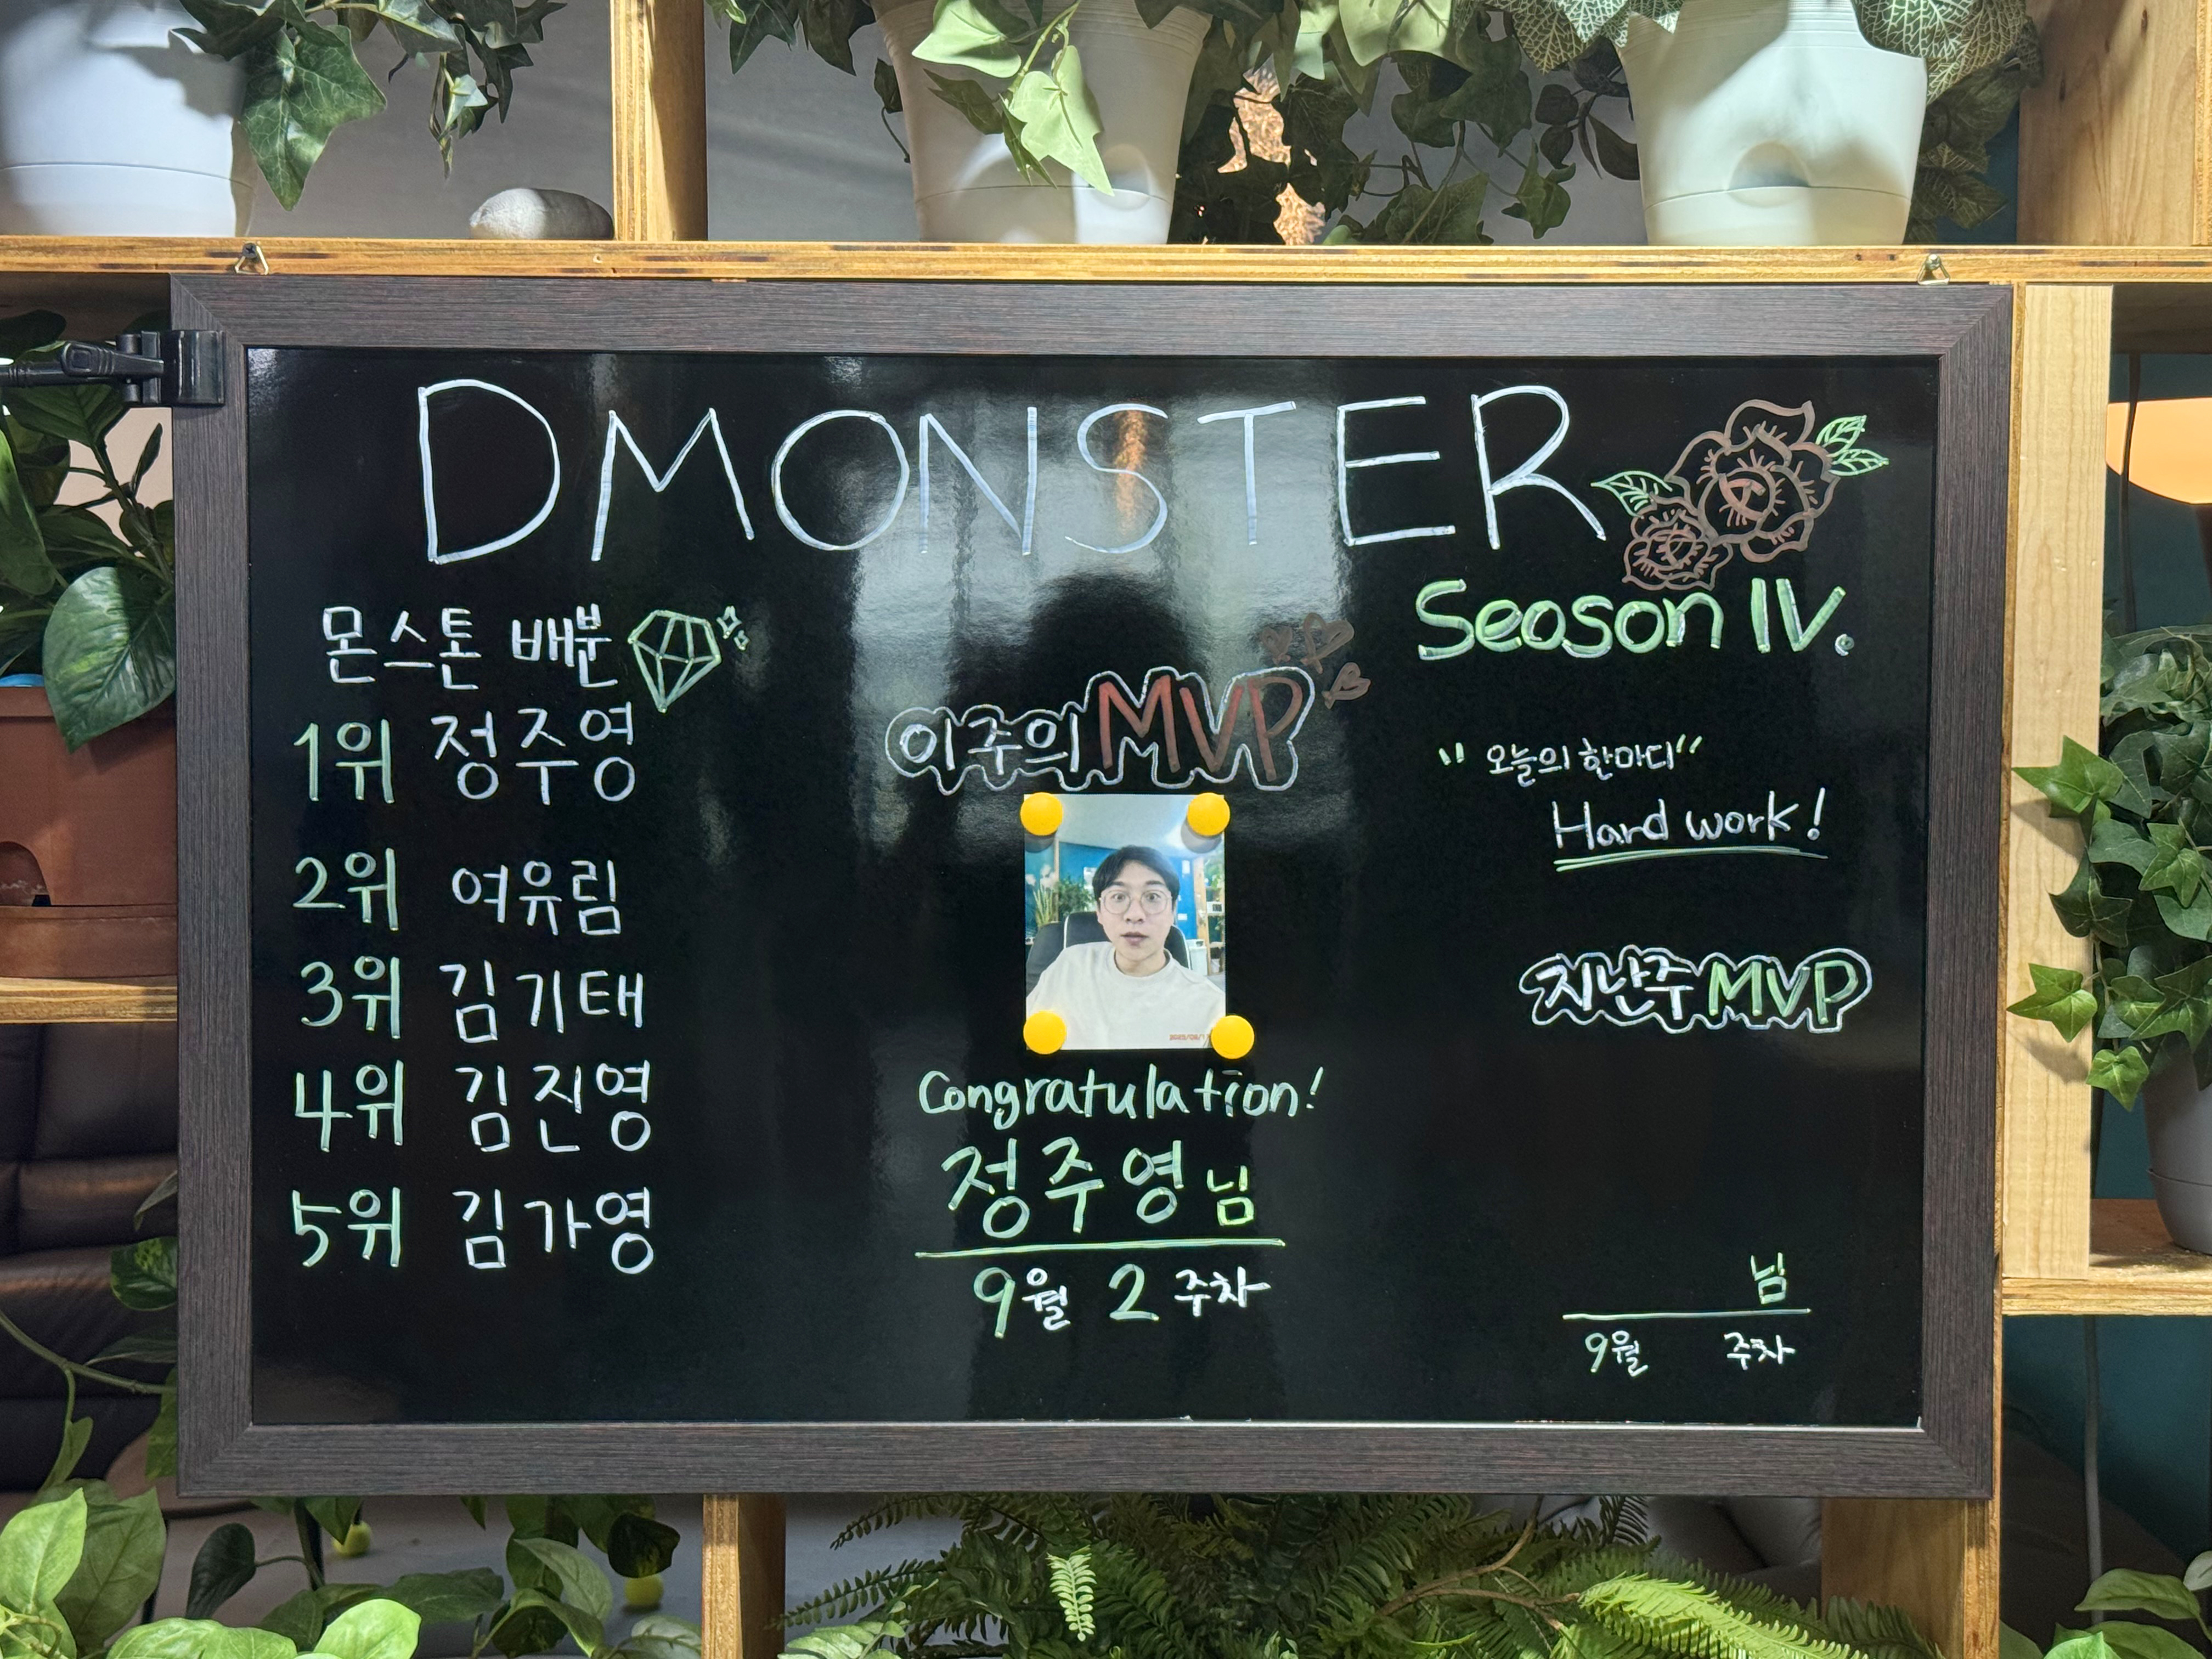 DMONSTER
Season IV.
몬스톤 배분
1위 정주영
2위 여유림
3위 김기태
4위 김진영
5위 김가영
이주의 MVP
Congratulation!
정주영 님
9월 2 주차
"오늘의 한마디"
Hard work!
지난주 MVP
님
9월 주차